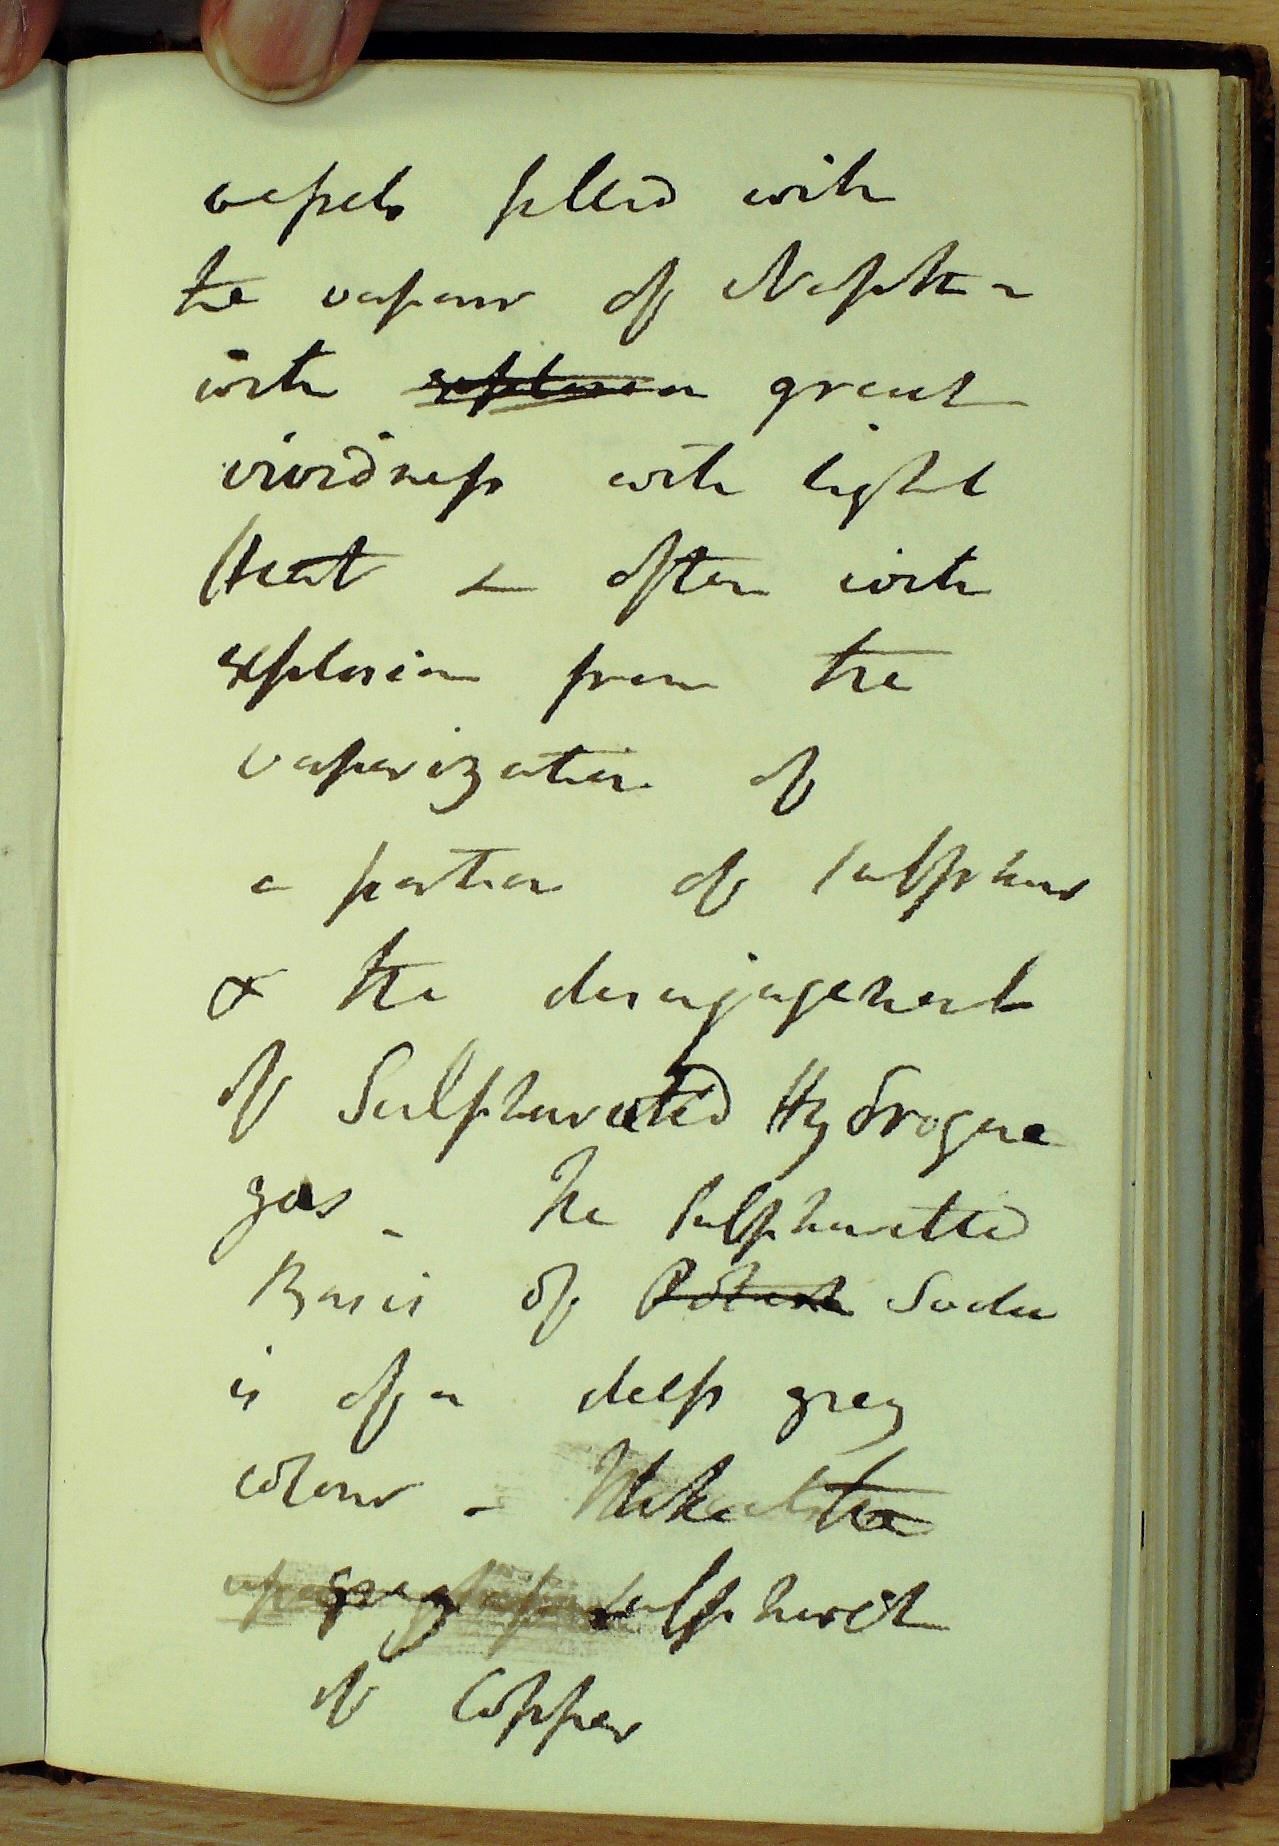 vessels filled with
the vapour of Naptha
with explosion great
vividness with light
Heat & often with
explosion from the
vaporization of
a portion of sulphur
& the disengagement
of Sulphurated Hydrogene
gas - The sulphuretted
Basis of Potash Soda
is of a deep grey
colour - like the
grey sulphuret
of Copper